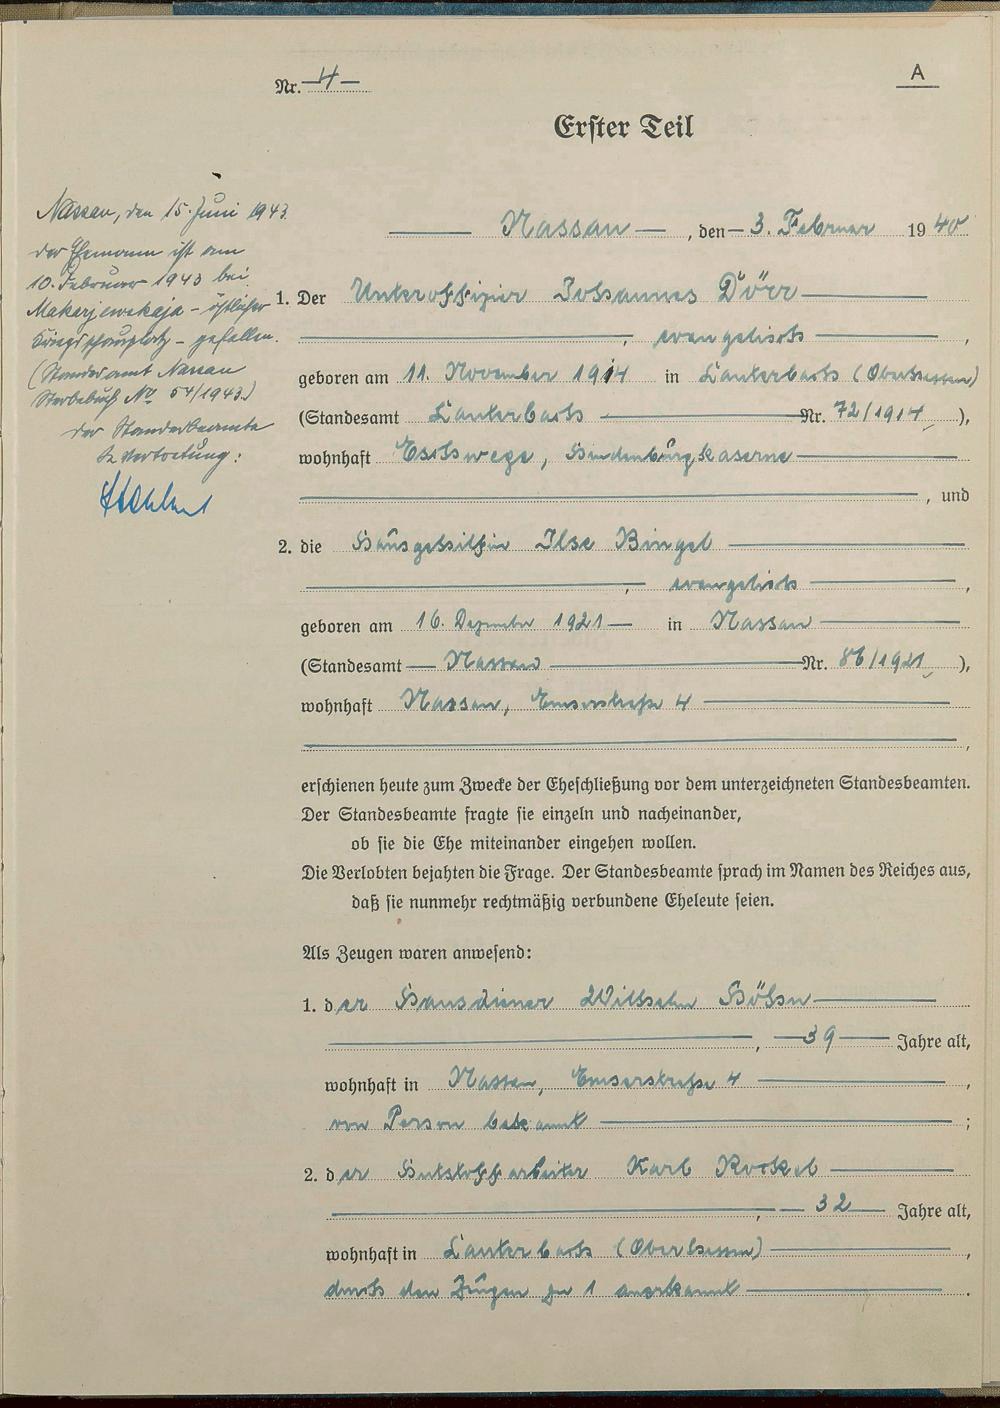 Nr. 4
A
Erster Teil
Nassau, den 15. Juni 1943.
der Ehemann ist am
10. Februar 1943 bei
Makerjewskaja - östlicher
Kriegsschauplatz - gefallen.
(Standesamt Nassau
Sterbebuch No 54/1943.)
Der Standesbeamte
In Vertretung:
Nassau, den 3. Februar 1940
1. Der Unteroffizier Johannes Dörr
, evangelisch,
geboren am 11. November 1914 in Lauterbach (Oberhessen)
(Standesamt Lauterbach Nr. 72/1914),
wohnhaft Eschwege, Hindenburgkaserne
, und
2. die Hausgehilfin Ilse Bingel
, evangelisch,
geboren am 16. Dezember 1921 in Nassau
(Standesamt Nassau Nr. 86/1921),
wohnhaft Nassau, Emserstraße 4
,
erschienen heute zum Zwecke der Eheschließung vor dem unterzeichneten Standesbeamten.
Der Standesbeamte fragte sie einzeln und nacheinander,
ob sie die Ehe miteinander eingehen wollen.
Die Verlobten bejahten die Frage. Der Standesbeamte sprach im Namen des Reiches aus,
daß sie nunmehr rechtmäßig verbundene Eheleute seien.
Als Zeugen waren anwesend:
1. der Hausdiener Wilhelm Höhn
, 39 Jahre alt,
wohnhaft in Nassau, Emserstraße 4,
von Person bekannt;
2. der Karl
, 32 Jahre alt,
wohnhaft in Lauterbach (Oberhessen),
durch den Zeugen zu 1 anerkannt.